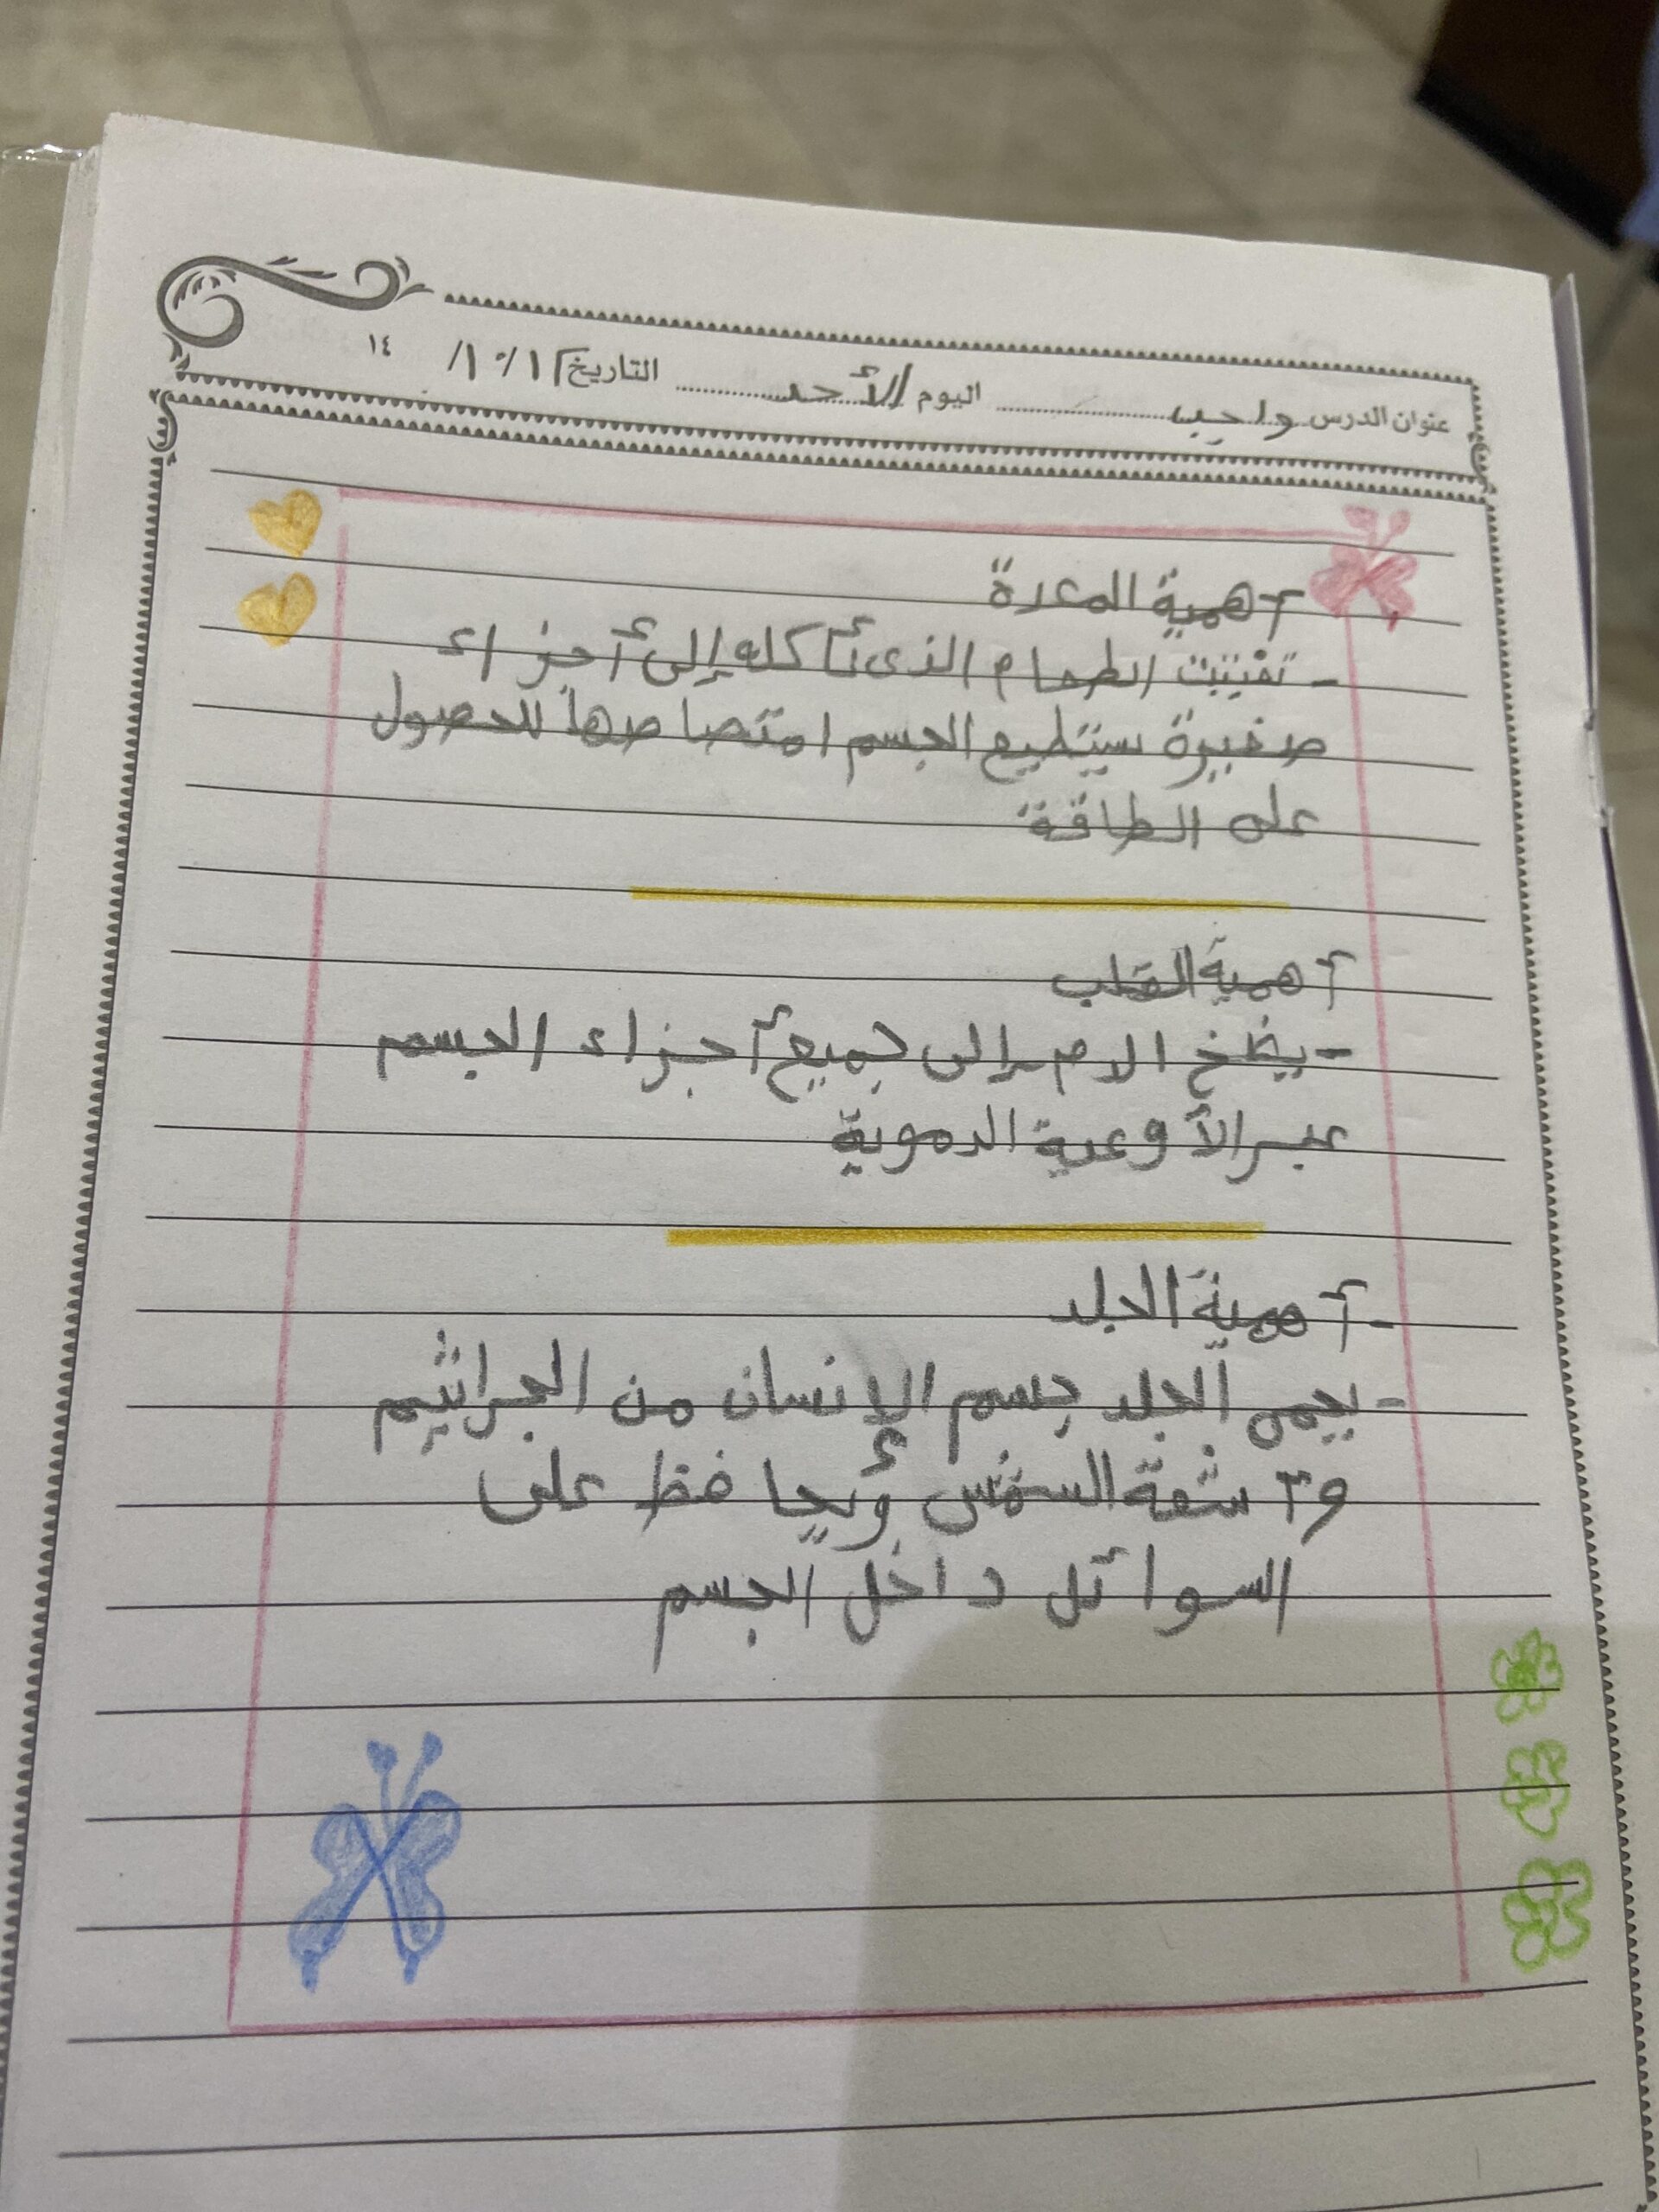 عنوان الدرس واجب اليوم الأحد التاريخ ١٤
أهمية المعدة
- تفتيت الطعام الذى نأكله إلى أجزاء
صغيرة يستطيع الجسم امتصاصها للحصول
على الطاقة
أهمية القلب
- يضخ الدم إلى جميع أجزاء الجسم
عبر الأوعية الدموية
- أهمية الجلد
- يحمى الجلد جسم الإنسان من الجراثيم
وأشعة الشمس ويحافظ على
السوائل داخل الجسم